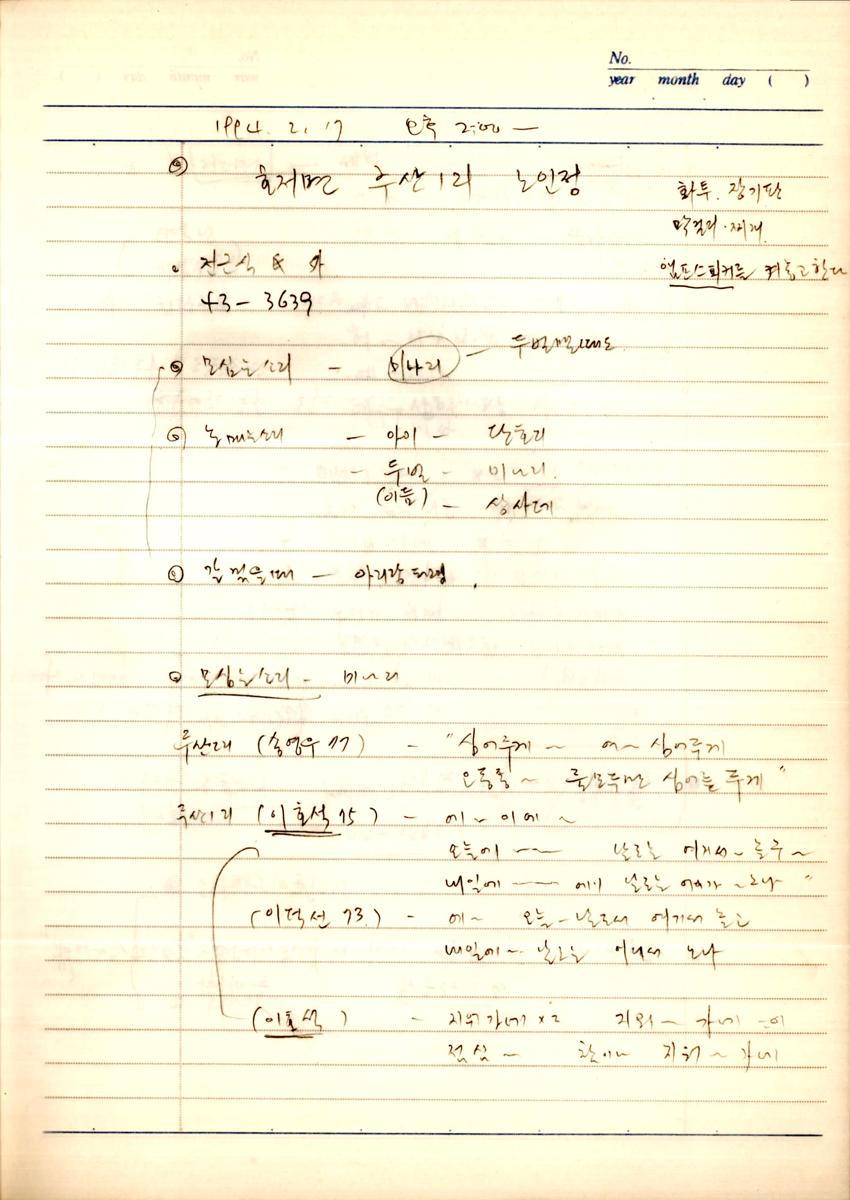 No.
year month day ( )
1994. 2. 17 오후 2:00 —
호저면 주산1리 노인정
화투. 장기판
막걸리.
앰프스피커를 켜놓고 한다
전근식
43 - 3639
모심는소리 - 미나리 - 두벌맬때도
논매는소리 - 아이 - 단호리
- 두벌 - 미나리.
(이듬) - 상사데
갈 꺾을때 - 아리랑타령.
모심는소리 - 미나리
주산2리 (송영우 77) - "심어주게 ~ 여~ 심어주게
오종종 ~ 줄모두만 심어를 주게"
주산1리 (이호석 75) - 에 ~ 이에 ~
오늘에 ~~ 날로는 여기서 ~ 놀구 ~
내일에 ~~ 에이 날로는 어디가 ~ 노나"
(이덕선 73.) - 에~ 오늘 ~ 날로서 여기서 놀고
내일에 ~ 날로는 어디서 노나
(이호석 ) - 지워가네 x2 지워 ~ 가네
점심 ~ 지워 ~ 가네